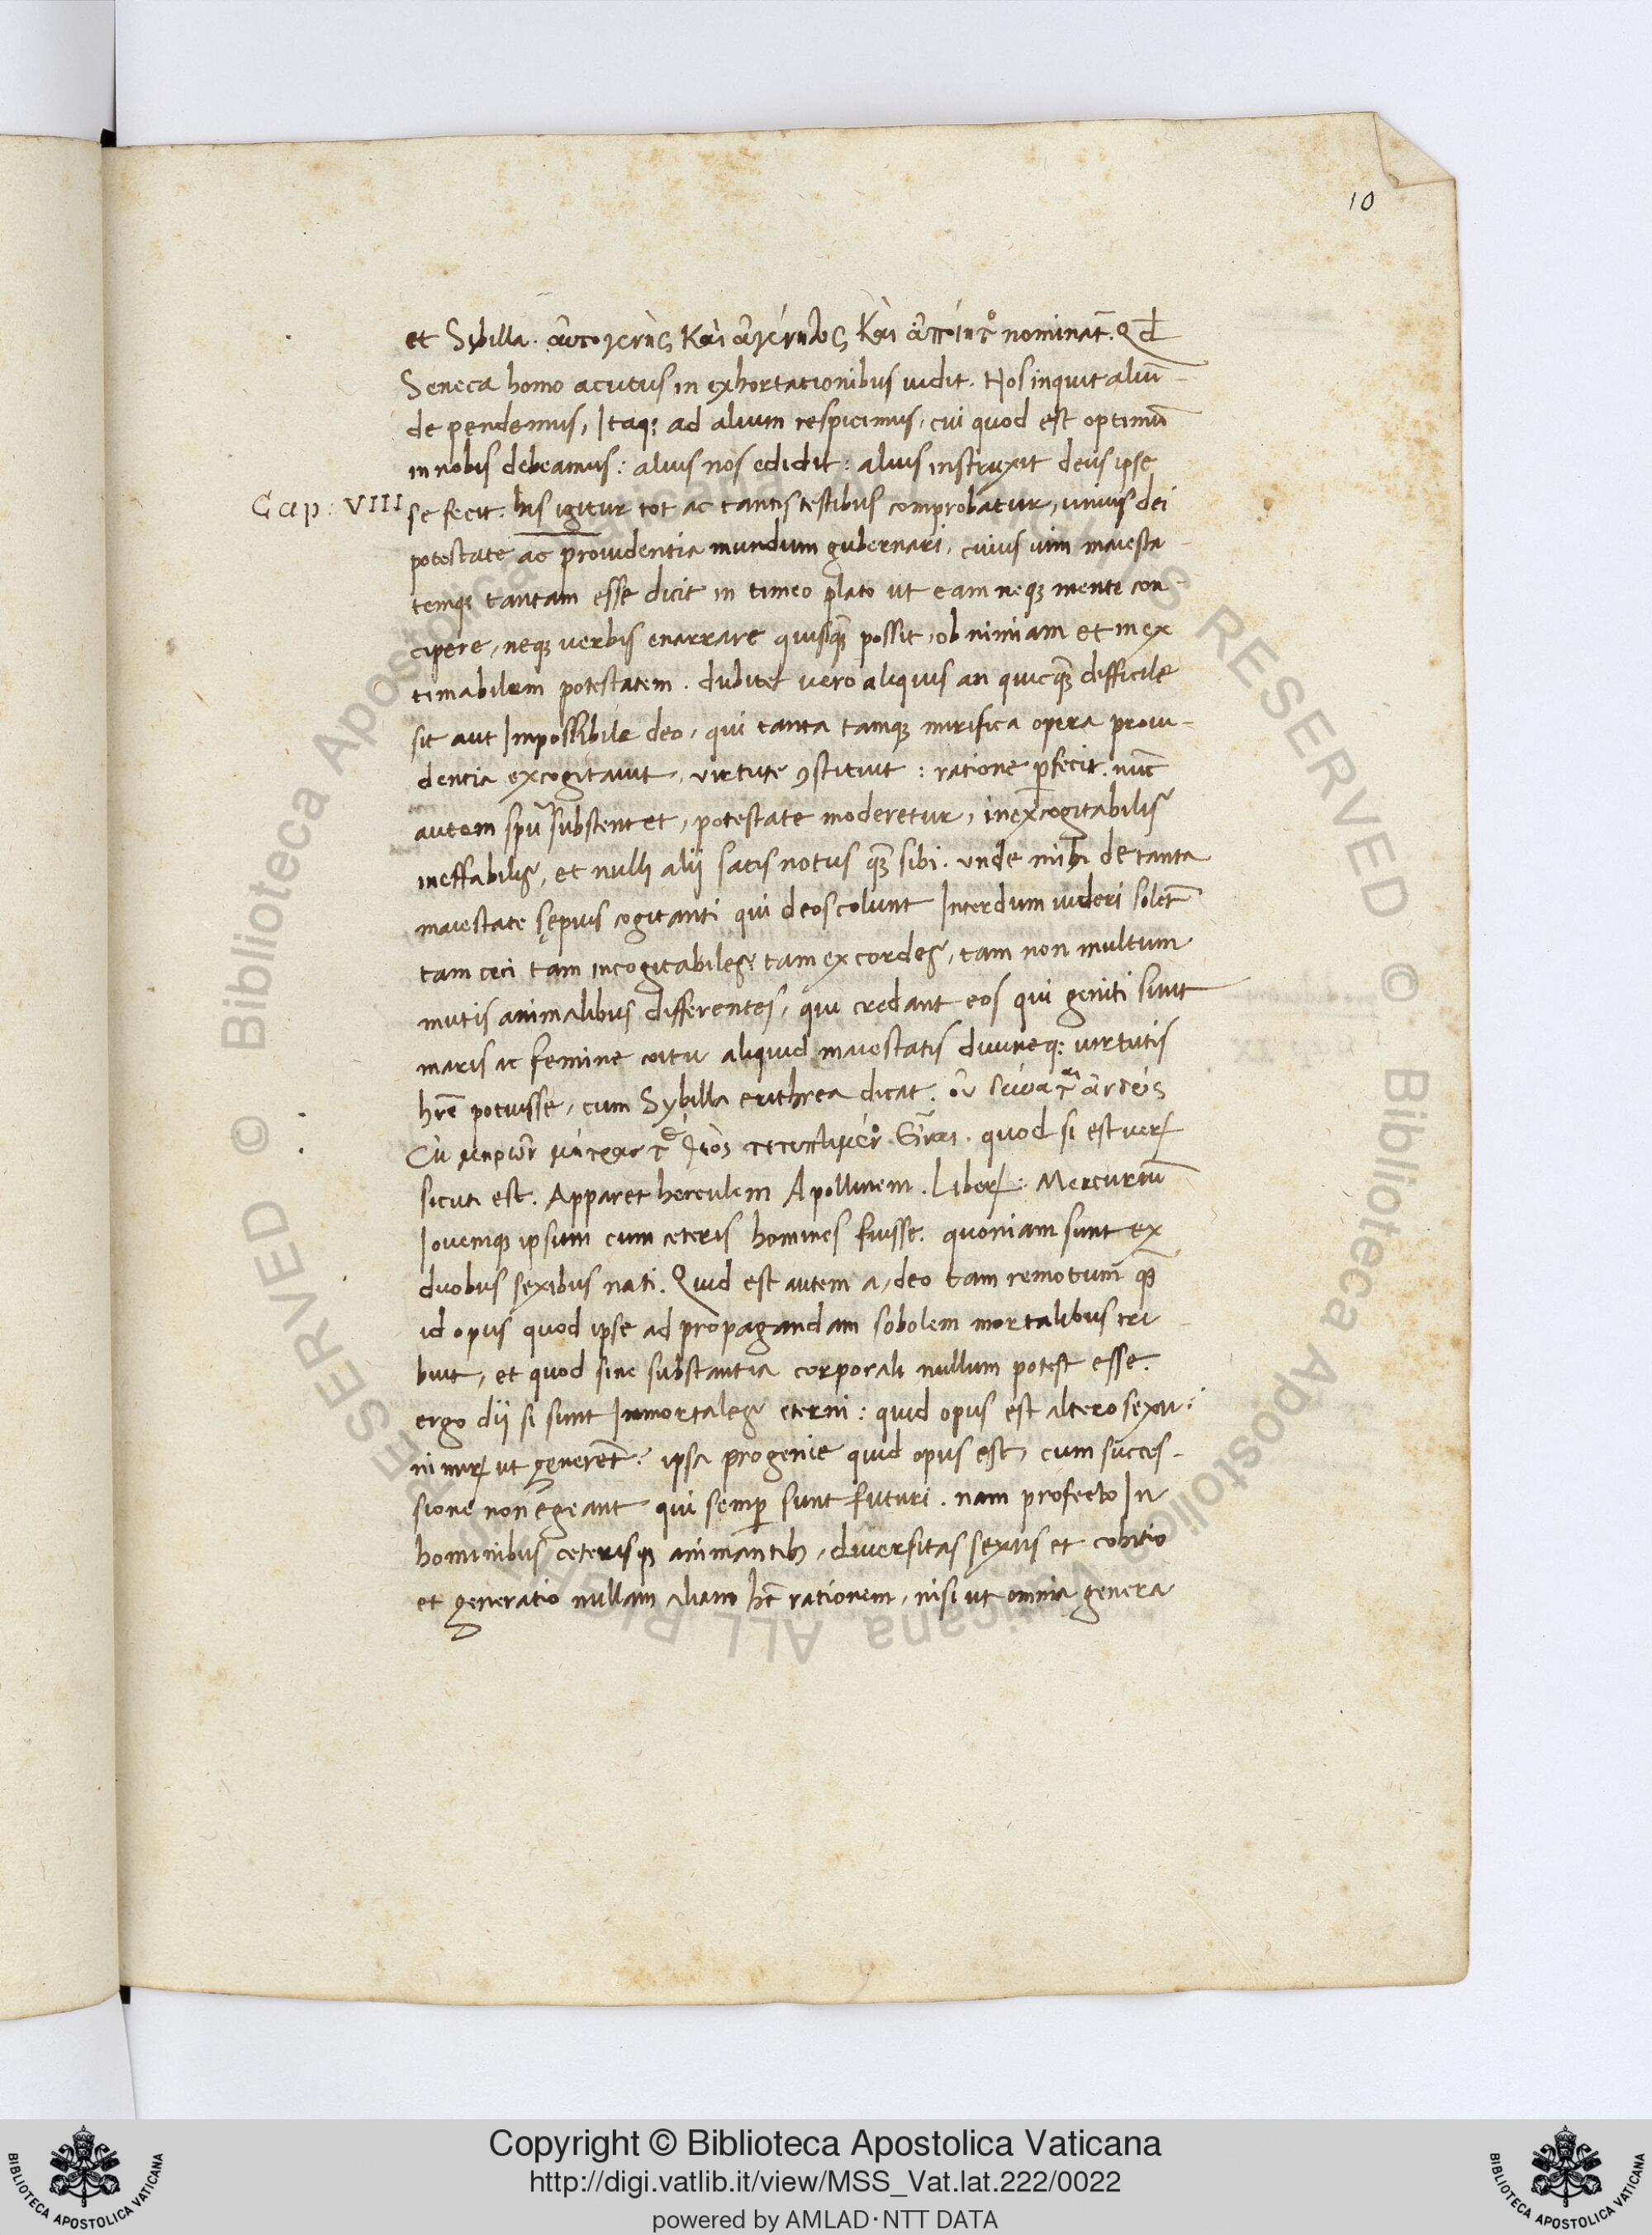 10
et Sybilla. αὐτογενὴς καὶ ἀγένητος καὶ ἀποίητ° nominat̄. Qđ
Seneca homo acutus in exhortationibus uidit. Nos inquit aliū-
de pendemus, Itaqꝫ ad alium respicimus, cui quod est optimū
in nobis debeamus: alius nos edidit: alius instruxit deus ipse
Cap: VIII
se fecit. his igitur tot ac tantis testibus comprobatur, unius dei
potestate ac prouidentia mundum gubernari, cuius uim maiesta-
temqꝫ tantam esse dicit in timeo plato ut eam neqꝫ mente con-
cipere, neqꝫ uerbis enarrare quisqꝫ̄ possit, ob nimiam et inex
timabilem potestatem. dubitet uero aliquis an quicqꝫ̄ difficile
sit aut Impossibile deo, qui tanta tamqꝫ mirifica opera proui-
dentia excogitauit, uirtute ꝯstituit: ratione ꝑfecit. nūc
autem spū substentet, potestate moderetur, inexcogitabilis
ineffabilis, et nulli alij satis notus qꝫ̄ sibi. unde mihi de tanta
maiestate sępius cogitanti qui deos colunt Interdum uideri solent̄
tam ceci tam incogitabiles: tam excordes, tam non multum
mutis animalibus differentes, qui credant eos qui geniti sunt
maris ac femine coitu aliquid maiestatis diuineqꝫ uirtutis
hr̄e potuisse, cum Sybilla erithrea dicat:
quod si est ueꝝ
sicuti est. Apparet herculem Apollinem. Libeꝝ: Mercuriū
Iouemqꝫ ipsum cum ceteris homines fuisse. quoniam sunt ex
duobus sexibus nati. Quid est autem a, deo tam remotum qꝫ̄
id opus quod ipse ad propagandam sobolem mortalibus tri-
buit, et quod sine substantia corporali nullum potest esse.
ergo dij si sunt Inmortales eterni: quid opus est altero sexu:
nimiꝝ ut generēt: ipsa progenie quid opus est, cum succes-
sione non egeant qui semꝑ sunt futuri. nam profecto In
hominibus ceterisqꝫ animantibꝫ, diuersitas sexus et cohitio
et generatio nullam aliam hēt rationem, nisi ut omnia genera
© Biblioteca Apostolica Vaticana ALL RIGHTS RESERVED © Biblioteca Apostolica Vaticana ALL RIGHTS RESERVED
Copyright © Biblioteca Apostolica Vaticana
http://digi.vatlib.it/view/MSS_Vat.lat.222/0022
powered by AMLAD·NTT DATA
BIBLIOTECA APOSTOLICA VATICANA
BIBLIOTECA APOSTOLICA VATICANA